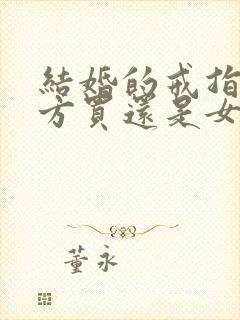 結婚的戒指
方買還是女
董永